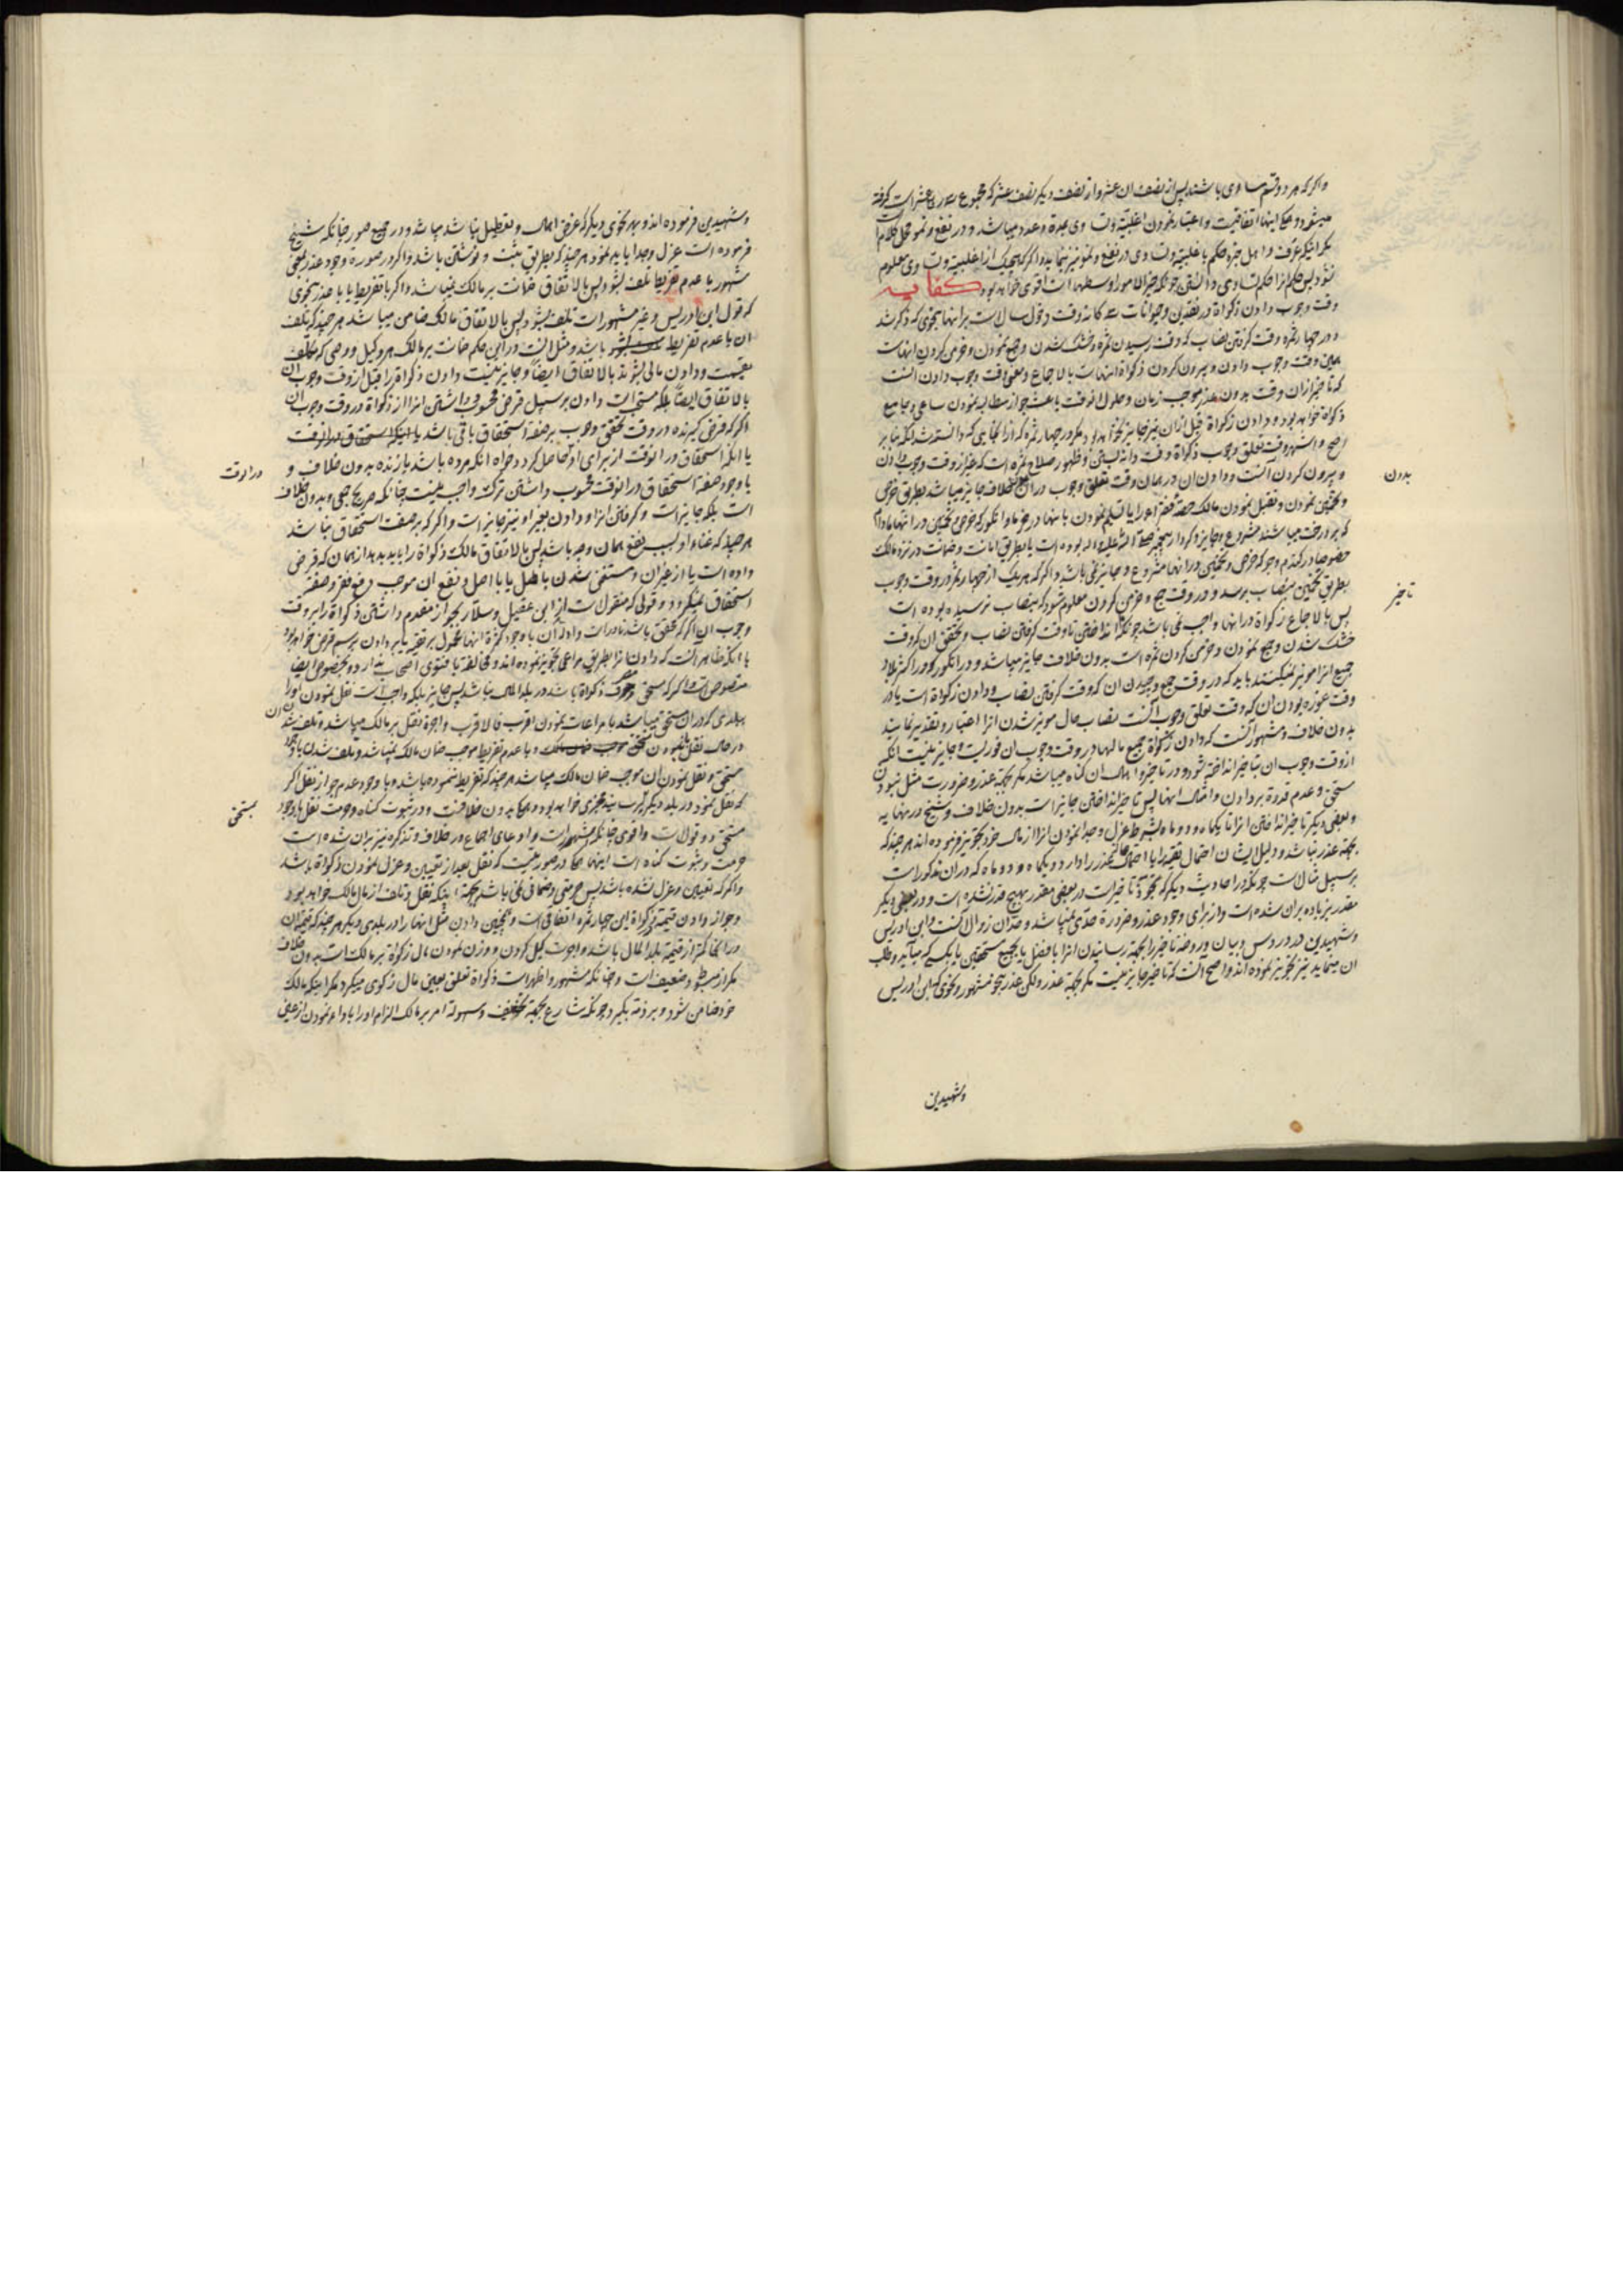 واكر كه هر دو قسم مساوى باشند پس از نصف ان عشر و از نصف ديكر نصف عشر كه مجموع سه ربع عشر است كرفته
ميشود و حكم اينها اتفاقيست و اعتبار نمودن اغلبية وتساوى بمدة وعدد ميباشد و در نفع و نمو محل كلام است
مكر انيكه عرف و اهل خبره حكم باغلبية وتساوى در نفع و نمو نيز نمايند و اكر كه هيچيك از اغلبية وتساوى معلوم
نشود پس حكم انرا حكم تساوى دانستن چونكه خير الامور اوسطها است اقوى خواهد بود كفايه
وقت وجوب دادن زكواة در نقدين و حيوانات سه كانه وقت دخول سال است بر انها بنحوى كه ذكر شد
و در چهار ثمره وقت كرفتن نصاب كه وقت رسيدن ثمره و خشك شدن و جمع نمودن و خرمن كردن انهاست
يعنى وقت وجوب دادن و بيرون كردن زكواة اينهاست بالاجماع و معنى وقت وجوب دادن انست
كه تاخير ازان وقت بدون عذر موجب زمان و حلول انوقت باعث جواز مطالبه نمودن ساعى و جامع
زكواة خواهد بود و دادن زكواة قبل ازان نيز جايز نخواهد بود مكر در چهار ثمره كه از انجايى كه دانسته شد بنابر
اصح و اشهر وقت تعلق وجوب زكواة وقت دانه بستن و ظهور صلاح ثمره است كه غير از وقت وجوب دادن
بدون
و بيرون كردن انست و دادن ان در همان وقت تعلق وجوب دران خلاف جايز ميباشد بطريق خرص
و تخمين نمودن و تقبل نمودن مالك حصه فقرا را يا تسليم نمودن بانها در خرما و انكور كه خرص و تخمين در انها مادام
كه بر درخت ميباشند مشروع و جايز و كردار پيغمبر صلى الله عليه واله بوده است يا بطريق امانت و ضمانت در نزد مالك
خصوصا در كندم و جو كه خرص و تخمين در انها مشروع و جايز نمى باشد و اكر كه هر يك از چهار ثمر در وقت وجوب
تاخير
بطريق تخمين بنصاب برسد و در وقت جمع و خرمن كردن معلوم شود كه بنصاب نرسيده بوده است
پس بالاجماع زكواة در انها واجب نمى باشد چونكه انداختن تا وقت كرفتن نصاب و تحقق ان كه وقت
خشك شدن و جمع نمودن و خرمن كردن ثمره است بدون خلاف جايز ميباشد و در انكور كه در اكثر بلاد
جميع انرا مويز نميكنند بايد كه در وقت جمع و چيدن ان كه وقت كرفتن نصاب و دادن زكواة است يا در
وقت غوره بودن ان كه وقت تعلق وجوب انست نصاب حال مويز شدن انرا اعتبار و تقدير نمايند
بدون خلاف و مشهور انست كه دادن زكواة جميع مالها در وقت وجوب ان فوريست و جايز نيست انكه
از وقت وجوب ان بتاخير انداخته شود و در تاخير و اهمال ان كناه ميباشد مكر بجهة عذر و ضرورت مثل نبودن
مستحق و عدم قدرة بر دادن و امثال اينها پس تاخير انداختن جايز است بدون خلاف و شيخ در نهايه
و بعضى ديكر تاخير انداختن انرا تا يكماه و دو ماه بشرط عزل و جدا نمودن انرا از مال خود تجويز فرموده اند هر چند كه
بجهة عذر نباشد و دليل ايشان احتمال تقيه را يا احتمال عذر را دارد و يكماه و دو ماه كه دران مذكور است
بر سبيل مثال است چونكه در احاديث ديكر كه مجوزه تاخير است در بعضى مقدر بهيچ قدر نشده است و در بعضى ديكر
مقدر بزياده بران شده است و از براى وجود عذر و ضرورة حدى نميباشد و حد ان زوال انست و ابن ادريس
و شهيدين در دروس و بيان و روضه تاخير را بجهة رسانيدن انرا بافضل يا بجميع مستحقين يا بكسى كه ميآيد و طلب
ان مينمايد نيز تجويز نموده اند و اصح انست كه تاخير جايز نيست مكر بجهة عذر ولكن عذر بنحو مشهور و بنحوى كه ابن ادريس
وشهيدين
وشهيدين فرموده اند و بهر نحوى ديكر كه غرض اهمال و تعطيل نباشد ميباشد و در جميع صور چنانكه شيخ
فرموده است عزل و جدا بايد نمود هر چند كه بطريق ثبت و نوشتن باشد و اكر در صورة وجود عذر بمعنى
مشهور با عدم تفريط تلف بشود پس بالاتفاق ضمانت بر مالك نميباشد و اكر با تفريط يا با عذر بنحوى
كه قول ابن ادريس و غير مشهور است تلف بشود پس بالاتفاق مالك ضامن ميباشد هر چند كه تلف
ان با عدم تفريط باشد و مثل انست در اين حكم ضمانت بر مالك هر وكيل و وصى كه مكلف
بقيمت و دادن مالى بشوند بالاتفاق ايضا و جايز نيست دادن زكواة را قبل از وقت وجوب ان
بالاتفاق ايضا بلكه مستحب است دادن بر سبيل قرض و محسوب داشتن انرا از زكواة در وقت وجوب ان
اكر كه قرض كيرنده در وقت تحقق وجوب بر صفة استحقاق باقى باشد
يا انكه استحقاق در انوقت از براى او حاصل كردد خواه انكه مرده باشد يا زنده بدون خلاف و
در انوقت
با وجود صفة استحقاق در انوقت محسوب داشتن تركت واجب نيست چنانكه صريح جمعى و بدون خلاف
است بلكه جايز است و كرفتن انرا و دادن بغير او نيز جايز است و اكر كه بر صفت استحقاق نباشد
هر چند كه غناء او بسبب نفع همان وجه باشد پس بالاتفاق مالك زكواة را بايد بدهد از همان كه قرض
داده است يا از غير ان و مستغنى شدن باصل يا با اصل و نفع ان موجب رفع فقر و صفة
استحقاق نميكردد و قولى كه منقول است از ابن عقيل و سلار بجواز مقدم داشتن زكواة را بر وقت
وجوب ان اكر كه محقق باشد نادر است و ادله ان با وجود كثرة انها محمول بر تقيه يا بر دادن برسم قرض خواهد بود
با انكه ظاهر انست كه دادن انرا بطريق مراعى تجويز نموده اند و مخالفة با فتوى اصحاب ندارد و بخصوص ايضا
منصوص است و اكر كه مستحق و مصرف زكواة باشد در بلد مال نباشد پس جايز بلكه واجب است نقل نمودن انرا
ببلدى كه دران مستحق ميباشد با مراعات نمودن اقرب فالاقرب و اجرة نقل بر مالك ميباشد و تلف شدن ان
در حال نقل با نبودن مستحق و با عدم تفريط موجب ضمان مالك نميباشد و تلف شدن با وجود
مستحق و نقل نمودن ان موجب ضمان مالك ميباشد هر چند كه تفريط ننموده باشد و با وجود عدم جواز نقل اكر
كه نقل نمود در بلد ديكر برسانيد مجزى خواهد بود و حكما بدون خلافست و در ثبوت كناه و حرمت نقل با وجود
بمستحق
مستحق دو قول است و اقوى چنانكه مشهور است و ادعاى اجماع در خلاف و تذكره نيز بران شده است
حرمت و ثبوت كناه است اينها همه در صورتيست كه نقل بعد از تعيين و عزل نمودن زكواة باشد
و اكر كه تعيين و عزل نشده باشد پس حرمتى و ضمانى نمى باشد بجهة اينكه نقل و تلف از مال مالك خواهد بود
و جواز دادن قيمة زكواة اين چهار ثمره اتفاقى است و همچنين دادن مثل انها را در بلدى ديكر هر چند كه قيمة ان
در انجا كمتر از قيمة بلد المال باشد و اجرت كيل كردن و وزن نمودن مال زكواة بر مالك است بدون خلاف
مكر از مبسوط و ضعيف است و چنانكه مشهور و اظهر است زكواة تعلق بعين مال زكوى ميكيرد مكر اينكه مالك
خود ضامن شود و بر ذمه بكيرد چونكه شارع بجهة تخفيف و سهولة امر بر مالك الزام او را باداء نمودن از عين